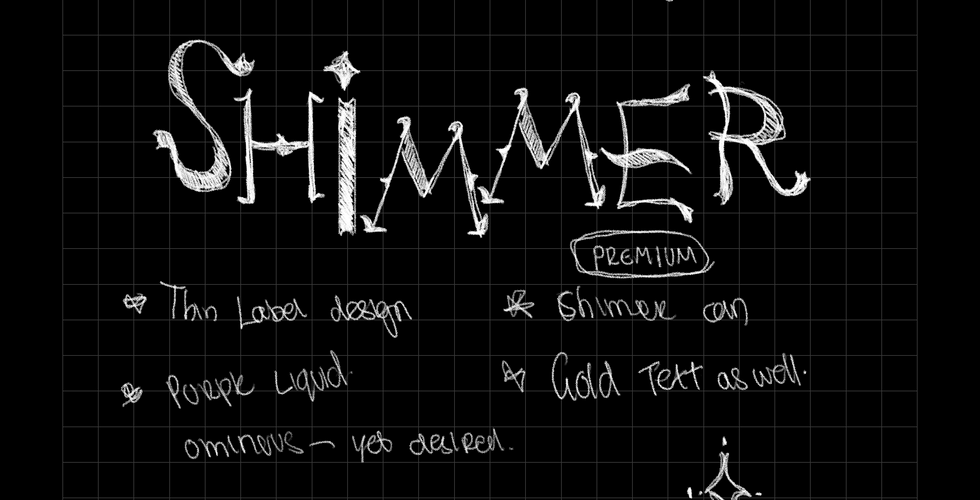 SHiMMER
PREMIUM
Thin Label design
Purple Liquid.
ominous — yet desired.
Shimer can
Gold Text as well.